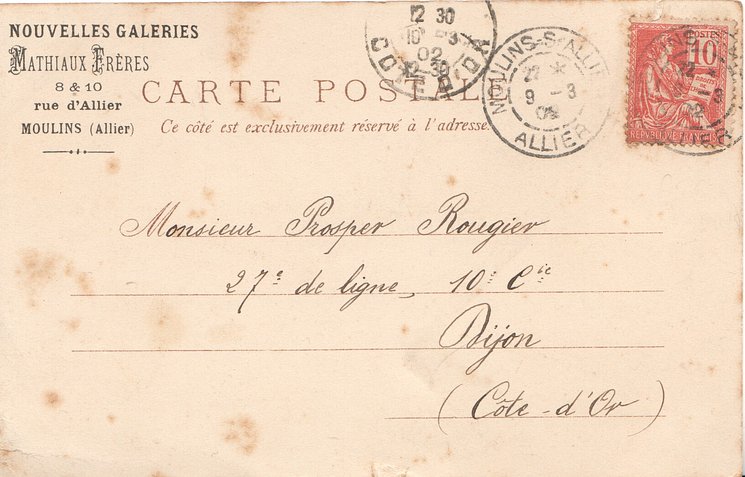 NOUVELLES GALERIES
MATHIAUX FRÈRES
8 & 10
rue d'Allier
MOULINS (Allier)
CARTE POSTALE
Ce côté est exclusivement réservé à l'adresse.
12 30
10 3
02
MOULINS-S-ALLIER
9 - 3
02
ALLIER
POSTES
10
REPUBLIQUE FRANÇAISE
Monsieur Prosper Rougier
27e de ligne, 10e Cie
Dijon
(Côte-d'Or)